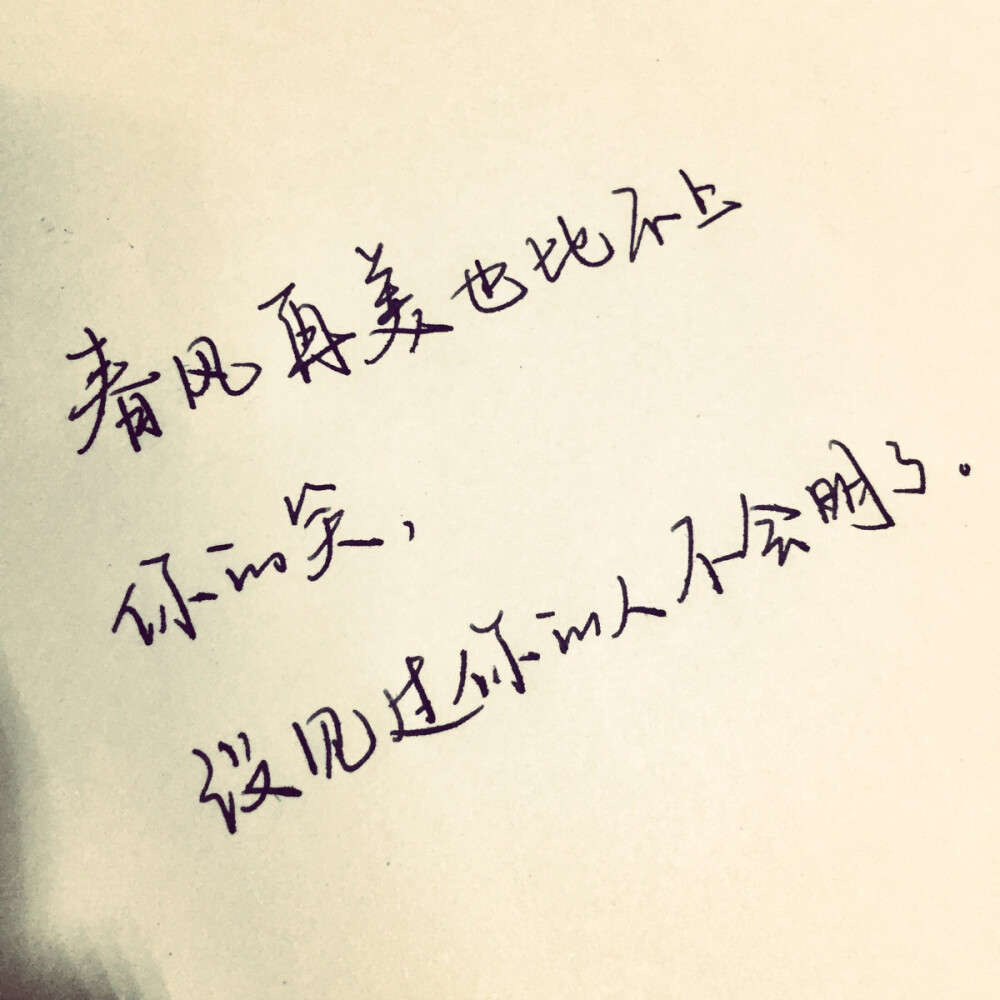 春风再美也比不上
你的笑,
没见过你的人不会明了。